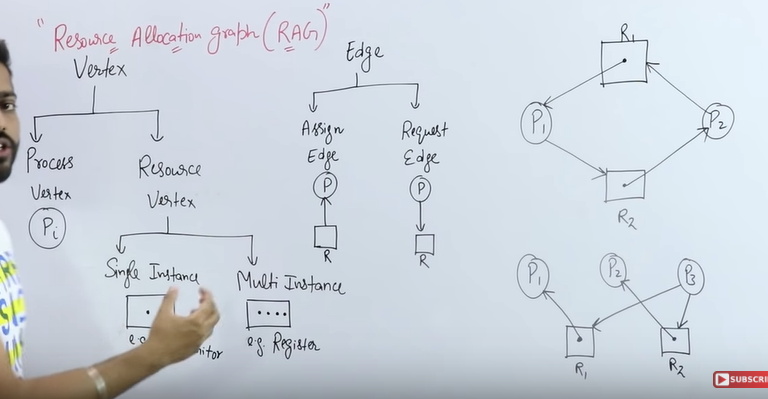 "Resource Allocation graph (RAG)"
Vertex
Process
Vertex
Pi
Resource
Vertex
Single Instance
Multi Instance
e.g.
e.g. Register
Edge
Assign
Edge
P
R
Request
Edge
P
R
R1
P1
P2
R2
P1
P2
P3
R1
R2
SUBSCRI